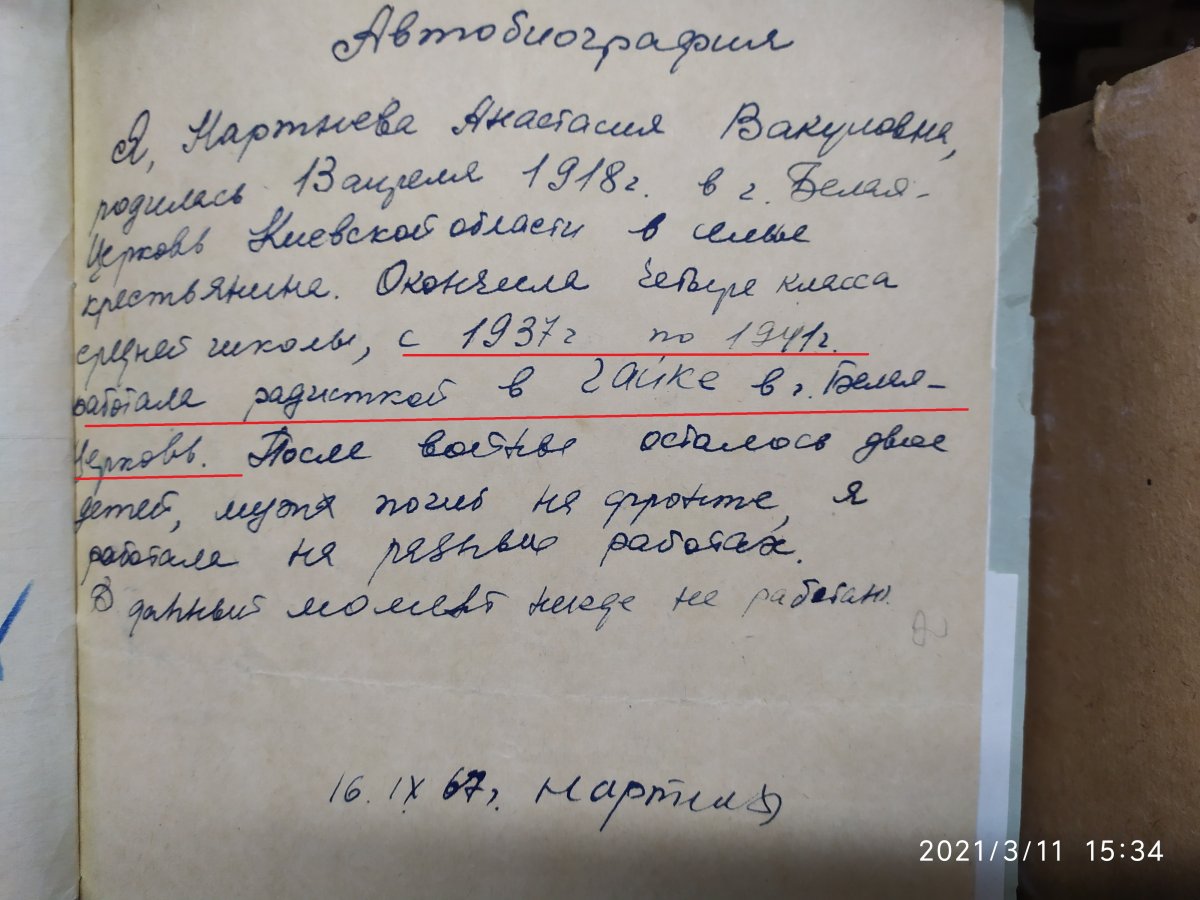 Автобиография
Я, Нартнева Анастасия Вакуловна,
родилась 13 апреля 1918 г. в г. Белая-
Церковь Киевской области в семье
крестьянина. Окончила четыре класса
средней школы, с 1937 г по 1941 г.
работала радисткой в чайке в г. Белая-
Церковь. После войны осталось двое
детей, мужя погиб на фронте, я
работала на разные работах.
В данный момент нигде не работаю.
16. IX 67 г.
2021/3/11 15:34